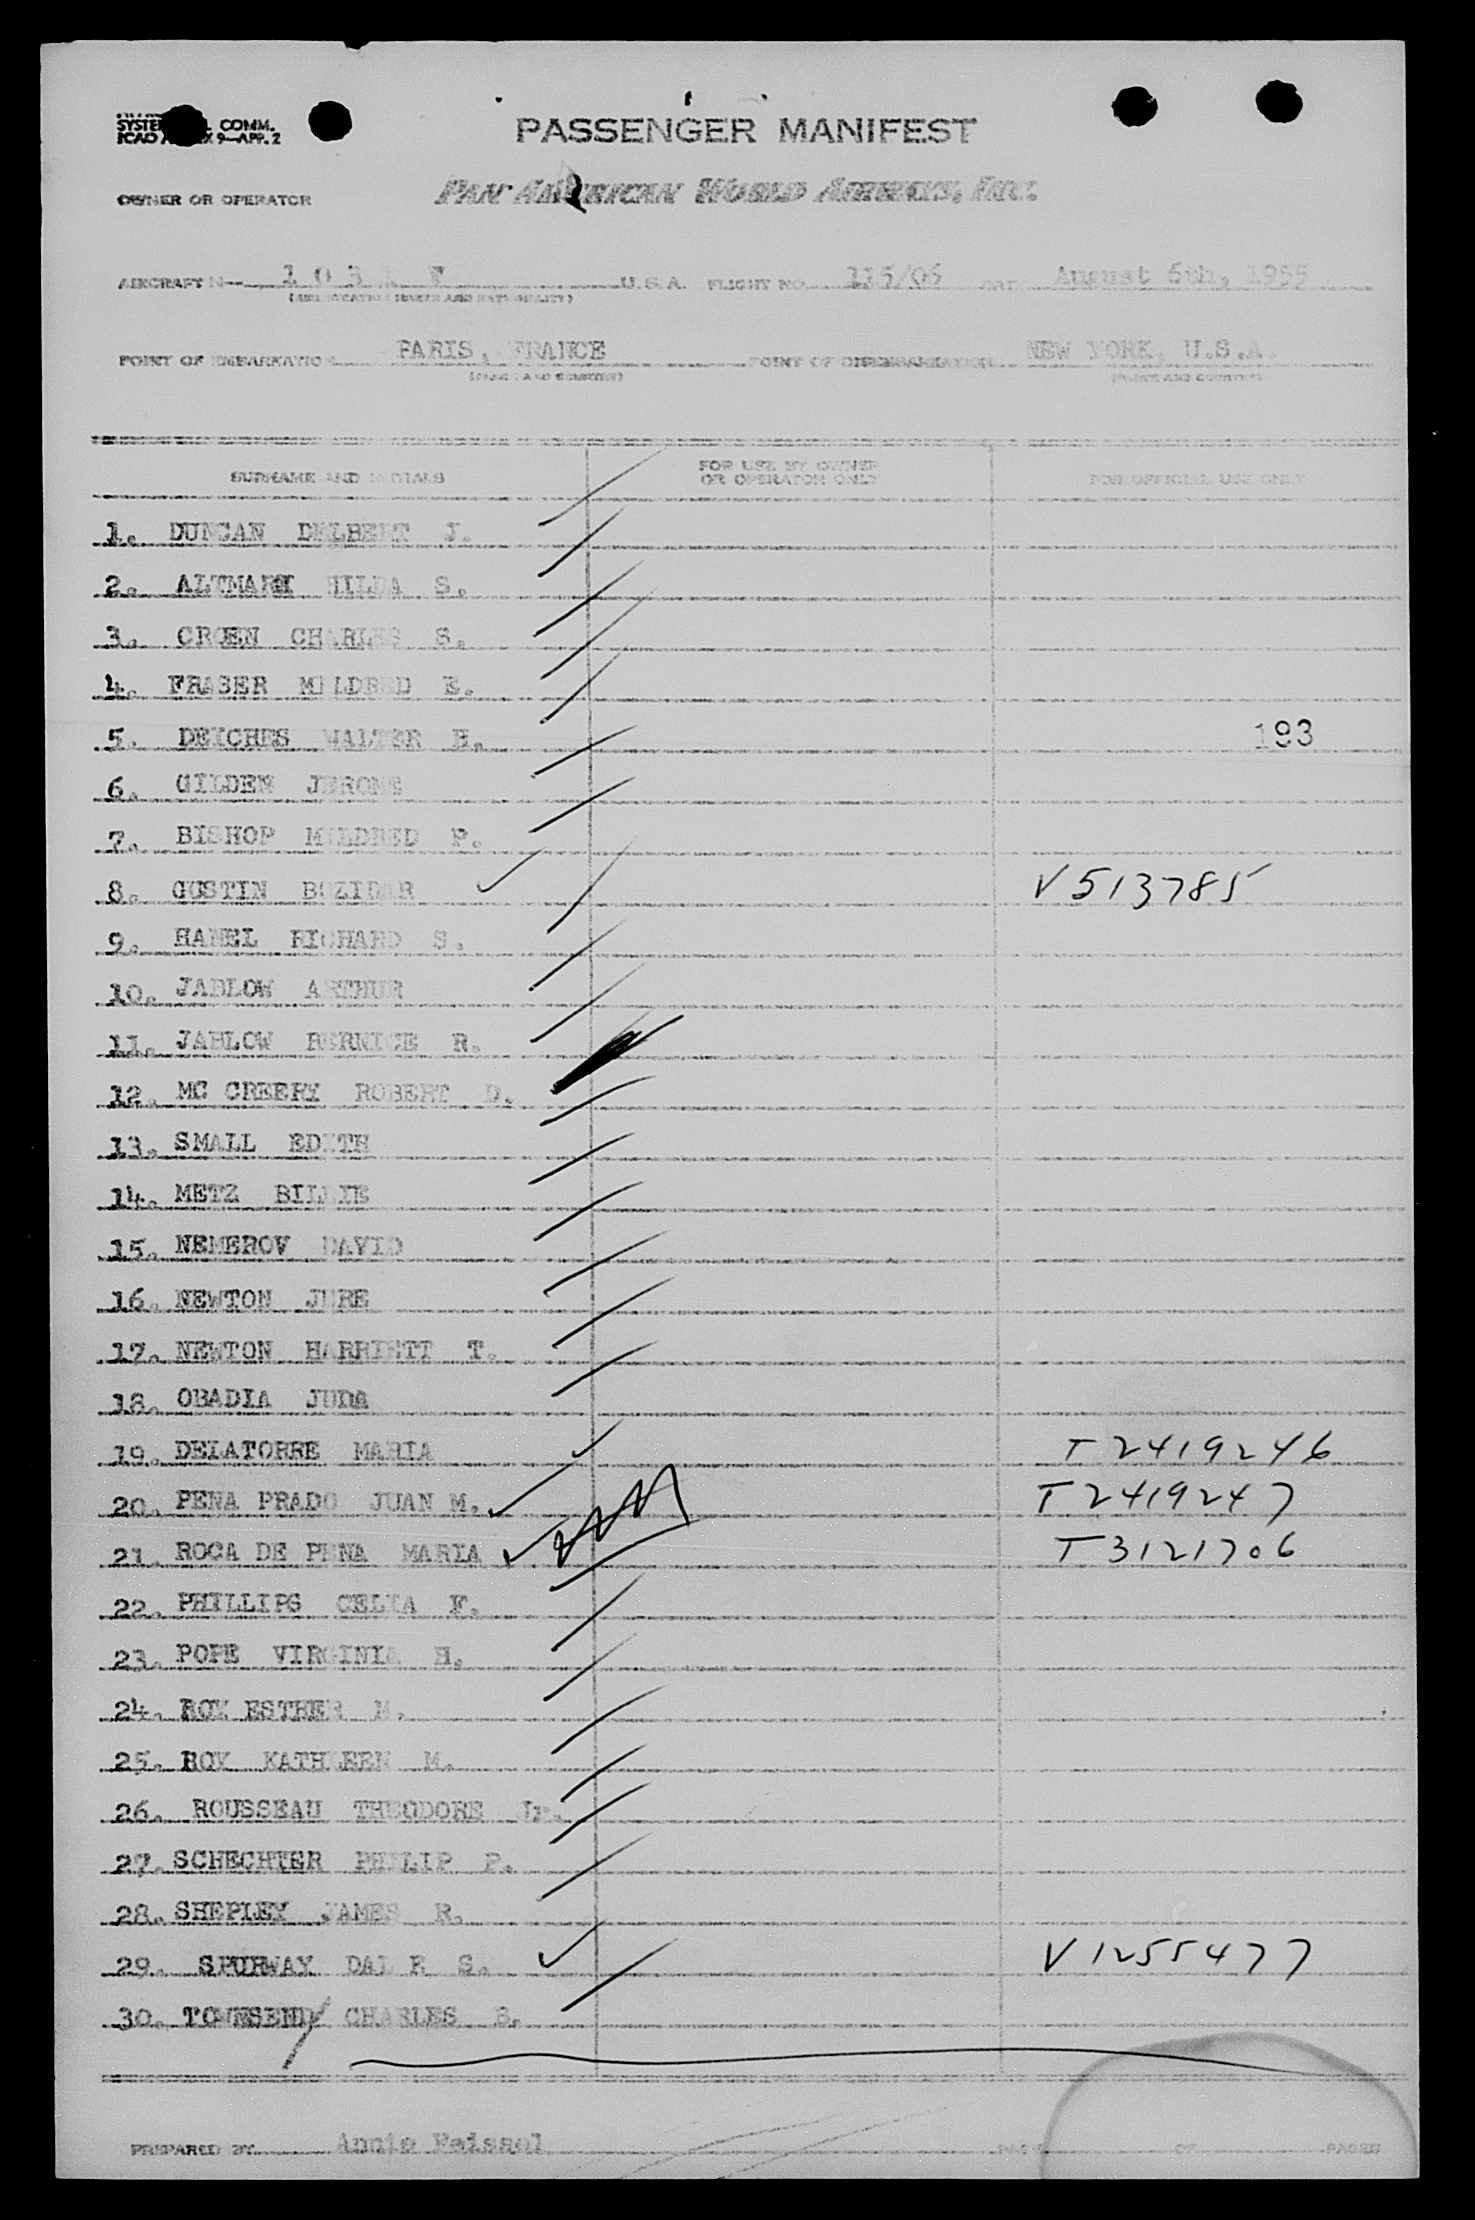 PASSENGER MANIFEST
SYSTE COMM.
ICAO 9—APP. 2
OWNER OR OPERATOR PAN AMERICAN WORLD AIRWAYS, INC.
AIRCRAFT N— 1 0 3 F U.S.A. FLIGHT NO. 115/06 August 6th, 1955
POINT OF EMBARKATION PARIS, FRANCE POINT OF DISEMBARKATION NEW YORK, U.S.A.
(PLACE AND COUNTRY) (PLACE AND COUNTRY)
SURNAME AND INITIALS FOR USE BY OWNER OR OPERATOR ONLY FOR OFFICIAL USE ONLY
1. DUNCAN DELBERT J.
2. ALTMARK HILDA S.
3. CROEN CHARLES S.
4. FRASER MILDRED E.
5. DEICHES WALTER H. 193
6. GILDEN JEROME
7. BISHOP MILDRED P.
8. GUSTIN BOZIDAR V513785
9. HAMEL RICHARD S.
10. JABLOW ARTHUR
11. JABLOW BERNICE R.
12. MC CREERY ROBERT D.
13. SMALL EDITH
14. METZ BILLIE
15. NEMEROV DAVID
16. NEWTON JERE
17. NEWTON HARRIETT T.
18. OBADIA JUDA
19. DELATORRE MARIA T2419246
20. PENA PRADO JUAN M. T2419247
21. ROCA DE PENA MARIA T3121706
22. PHILLIPS CELIA F.
23. POPE VIRGINIA H.
24. ROY ESTHER M.
25. ROY KATHLEEN M.
26. ROUSSEAU THEODORE Jr.
27. SCHECHTER PHILIP P.
28. SHEPLEY JAMES R.
29. SPURWAY S. V1255477
30. TOWNSEND CHARLES B.
PREPARED BY Annie PAGE OF PAGES